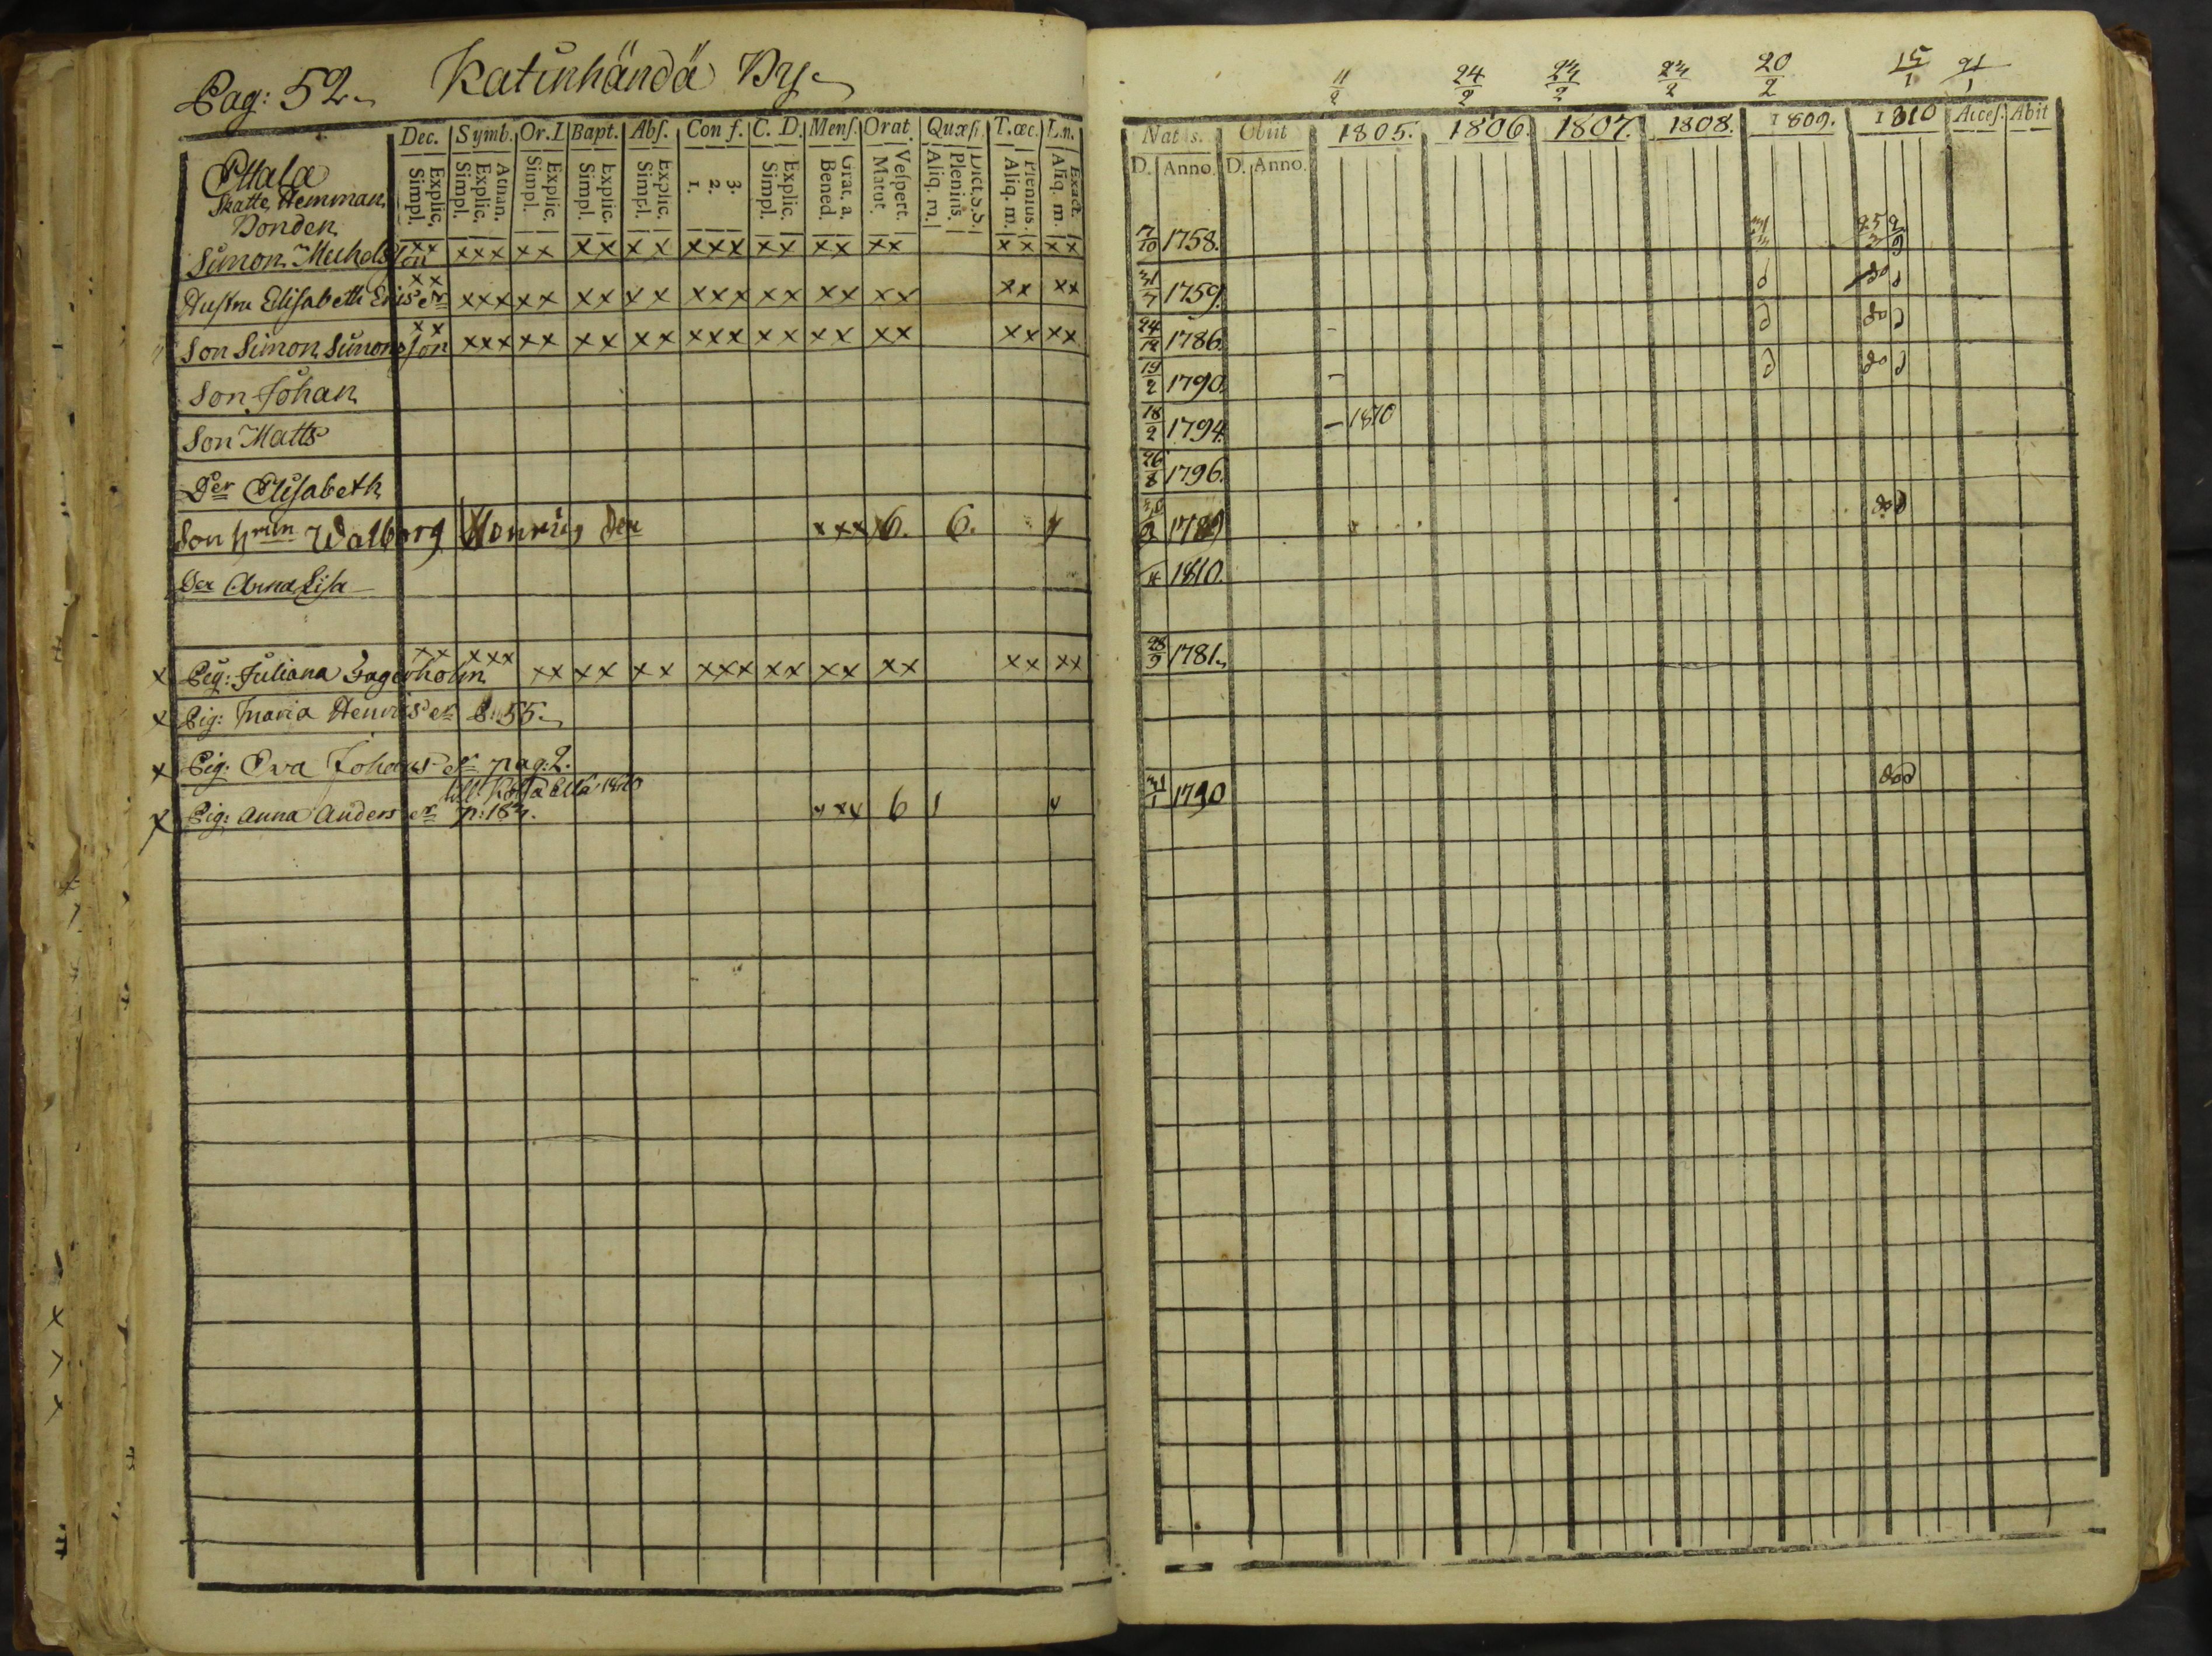 Pag: 52. Katinhändä By.
11/2 24/2 23/2 23/2 20/2 15/1 21/1
Dec. Symb. Or.I Bapt. Abſ. Con f. C. D. Menſ. Orat. Quæſi. T. œc. L.n.
Nat s. Obiit 1805. 1806. 1807. 1808. 1809. 1810 Acceſ. Abit
Explic. Simpl. Atnan. Explic. Simpl. Explic. Simpl. Explic. Simpl. Explic. Simpl. 3. 2. 1. Explic. Simpl. Grat. a. Bened. Veſpert. Matut. Dict.S.S. Plenius. Aliq. m. Plenius. Aliq. m. Exact. Aliq. m.
D. Anno. D. Anno.
Ettala
Skatte Hemman
Bonden
Simon Michelsson xx xxx xx xx xx xxx xx xx xx xx xx 17/10 1758. 25/3 2/9
Hustru Elisabeth Eris dr xx xxx xx xx xx xxx xx xx xx xx xx 31/7 1759. do
Son Simon Simonsson xx xxx xx xx xx xxx xx xx xx xx xx 24/12 1786. do
Son Johan 19/2 1790. do
Son Matts 18/2 1794. – 1810
Der Elisabeth 26/8 1796.
Son hrun Walborg Henrics der xxx 6. 6. 1789 do
Der Anna Lisa 1810.
x Pig: Juliana Gagerholm xx xxx xx xx xx xxx xx xx xx xx xx 28/9 1781.
x Pig: Maria Henrics dr P: 55.
x Pig: Eva Johans dr pag: 2.
x Pig: Anna Anders dr p: 183. xxx 6 1 31/1 1790 do